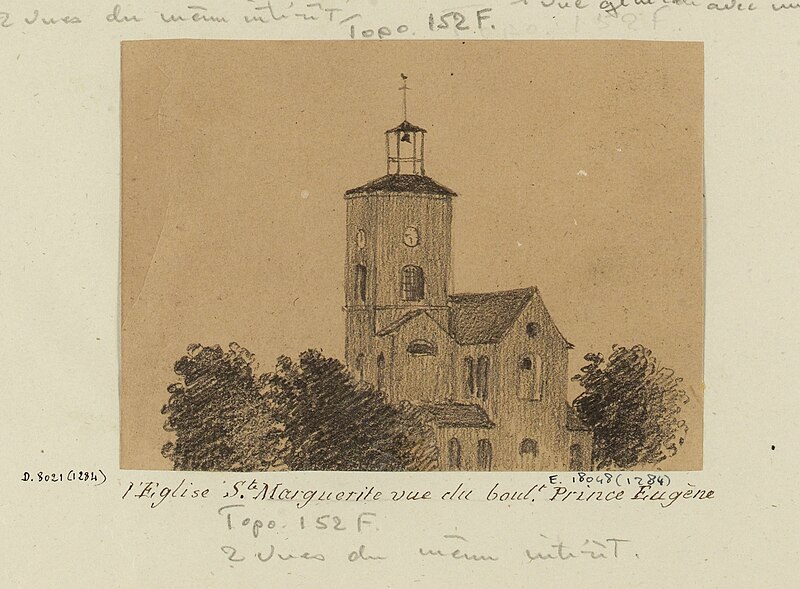 2 vues du même intérêt
1 vue générale avec
Topo. 152 F.
D. 8021 (1284)
E. 18048 (1284)
l'Eglise S.te Marguerite vue du boul.t Prince Eugène
Topo. 152 F.
2 vues du même intérêt.